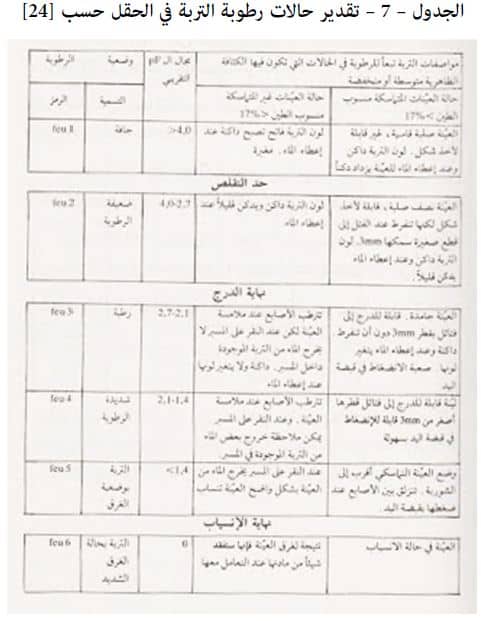 الجدول – 7 – تقدير حالات رطوبة التربة في الحقل حسب [24]
مواصفات التربة تبعاً للرطوبة في الحالات التي تكون فيها الكثافة
الظاهرية متوسطة أو منخفضة
مجال الـ pF
التقريبي
وضعية
الرطوبة
حالة العينات المتماسكة منسوب
الطين >17%
حالة العينات غير المتماسكة
منسوب الطين <17%
التسمية
الرمز
العينة صلبة قاسية، غير قابلة
لأخذ شكل. لون التربة داكن
وعند إعطاء الماء للعينة يزداد دكناً
لون التربة فاتح تصبح داكنة عند
إعطاء الماء. مغبرة
>4,0
جافة
feu.1
حد التقلص
العينة نصف صلبة، قابلة لأخذ
شكل لكنها تنفرط عند الفتل إلى
قطع صغيرة سمكها 3mm. لون
التربة داكن وعند إعطاء الماء
يدكن قليلاً.
لون التربة داكن ويدكن قليلاً عند
إعطاء الماء
4,0-2,7
ضعيفة
الرطوبة
feu.2
نهاية الدرج
العينة جامدة. قابلة للدرج إلى
فتائل بقطر 3mm دون أن تنفرط.
داكنة وعند إعطاء الماء يتغير
لونها. صعبة الانضغاط في قبضة
اليد
تترطب الأصابع عند ملامسة
العينة لكن عند النقر على المسبر لا
يخرج الماء من التربة الموجودة
داخل المسبر. داكنة ولا يتغير لونها
عند إعطاء الماء
2,7-2,1
رطبة
feu.3
لينة قابلة للدرج إلى فتائل قطرها
أصغر من 3mm قابلة للإنضغاط
في قبضة اليد بسهولة
تترطب الأصابع عند ملامسة
العينة. وعند النقر على المسبر
يمكن ملاحظة خروج بعض الماء
من التربة الموجودة في المسبر.
2,1-1,4
شديدة
الرطوبة
feu.4
وضع العينة التماسكي أقرب إلى
الشوربة. تنزلق بين الأصابع عند
ضغطها بقبضة اليد.
عند النقر على المسبر يخرج الماء من
العينة بشكل واضح العينة تنساب
<1,4
التربة
بوضعية
الغرق
feu.5
نهاية الإنسياب
العينة في حالة الانسياب
نتيجة لغرق العينة فإنها ستفقد
شيئاً من مادتها عند التعامل معها
0
التربة بحالة
الغرق
الشديد
feu.6